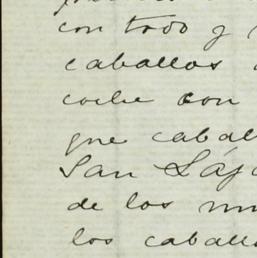 con todo y
caballos
coche con
que caball
San Láz
de los mu
los caballo